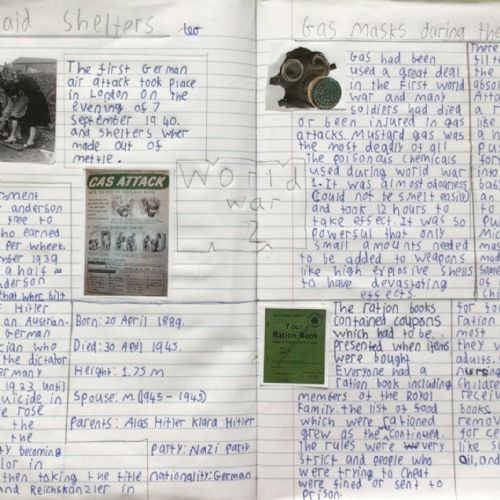 aid Shelters
Leo
The first German
air attack took place
in London on the
evening of 7
September 1940.
and shelters wher
made out of
mettle.
GAS ATTACK
World
war
2
ernment
anderson
free to
who earned
Per wheek
mber 1939
a half
nderson
that wher bilt
Hitler
an Austrian-
German
ician who
the dictator
ermany
1933 until
suicide in
e rose
the
the
ty becoming
lor in
then taking the title
and Reichskanzler in
Born: 20 April 1889.
Died: 30 April 1945.
Height: 1.75 m
Spouse: m. (1945 - 1945)
Parents: Alas Hitler Klara Hitler
Party: Nazi Party
nationality: German
Gas masks during the
Gas had been
used a great deal
in the First World
war and many
soldiers had died
or been injured in gas
attacks. Mustard gas was
the most deadly of all
the poisonous chemicals
used during world war
1. It was almost odourless
Could not be smelt easily
and took 12 hours to
take effect. It was so
powerful that only
small amounts needed
to be added to weapons
like high explosive shells
to have devastating
effects.
Your
Ration Book
The ration books
contained coupons
which had to be
presented when items
were bought
Everyone had a
ration book including
members of the Royal
Family. the list of food
which were rationed
grew as the continued.
The rules were very
strict and people who
were trying to cheat
were fined or sent to
prison.
There
filt
the
abso
Atta
like
a l
Pu
for
int
ba
an
to
Pu
Mic
mas
mod
some
of
in
and
for
Ration
most
they w
adults.
nursing
Childre
receive
books
remove
for ce
oil, and